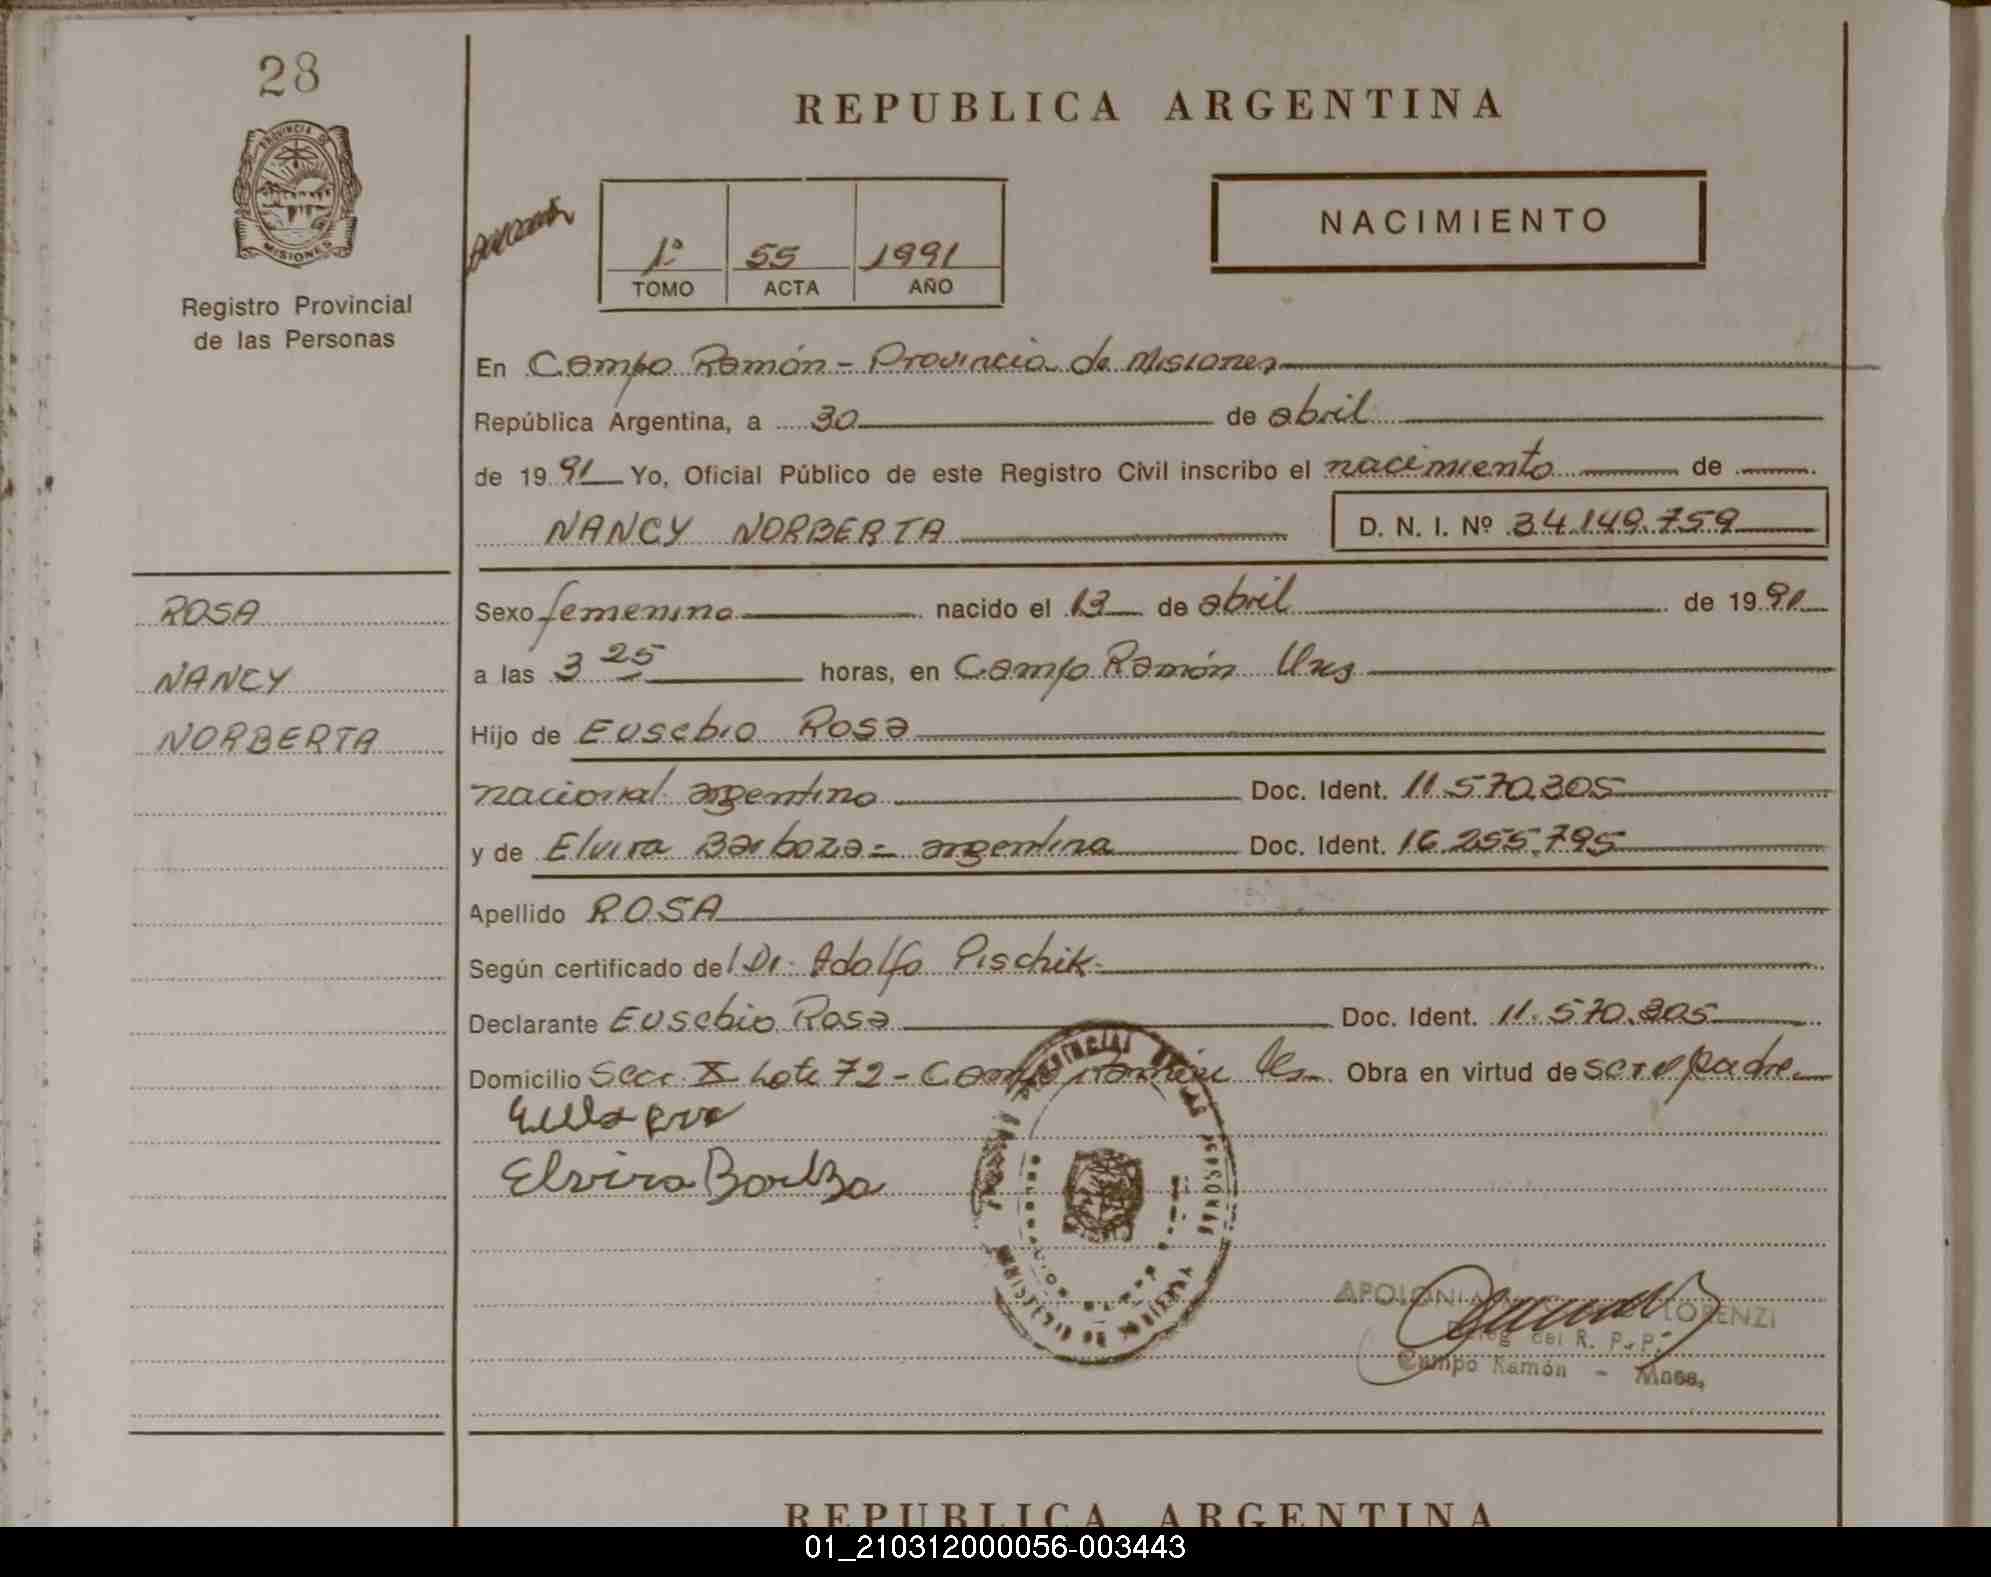 28
REPUBLICA ARGENTINA
PROVINCIA DE
MISIONES
Registro Provincial
de las Personas
1º 55 1991
TOMO ACTA AÑO
NACIMIENTO
En Campo Ramón - Provincia de Misiones
República Argentina, a 30 de abril
de 1991 Yo, Oficial Público de este Registro Civil inscribo el nacimiento de
NANCY NORBERTA D. N. I. Nº 34.149.759
ROSA
NANCY
NORBERTA
Sexo femenino nacido el 13 de abril de 1991
a las 3 25 horas, en Campo Ramón
Hijo de Eusebio Rosa
nacional argentino Doc. Ident. 11.570.305
y de Elvira Barboza = argentina Doc. Ident. 16.255.795
Apellido ROSA
Según certificado del Dr. Adolfo Pischik
Declarante Eusebio Rosa Doc. Ident. 11.570.305
Domicilio Secc. X Lote 72 - Campo Ramón Obra en virtud de ser el padre
Elvira Barboza
APOLONIA LORENZI
Deleg del R. P. P.
Campo Ramón - Mnes,
REPUBLICA ARGENTINA
01_210312000056-003443